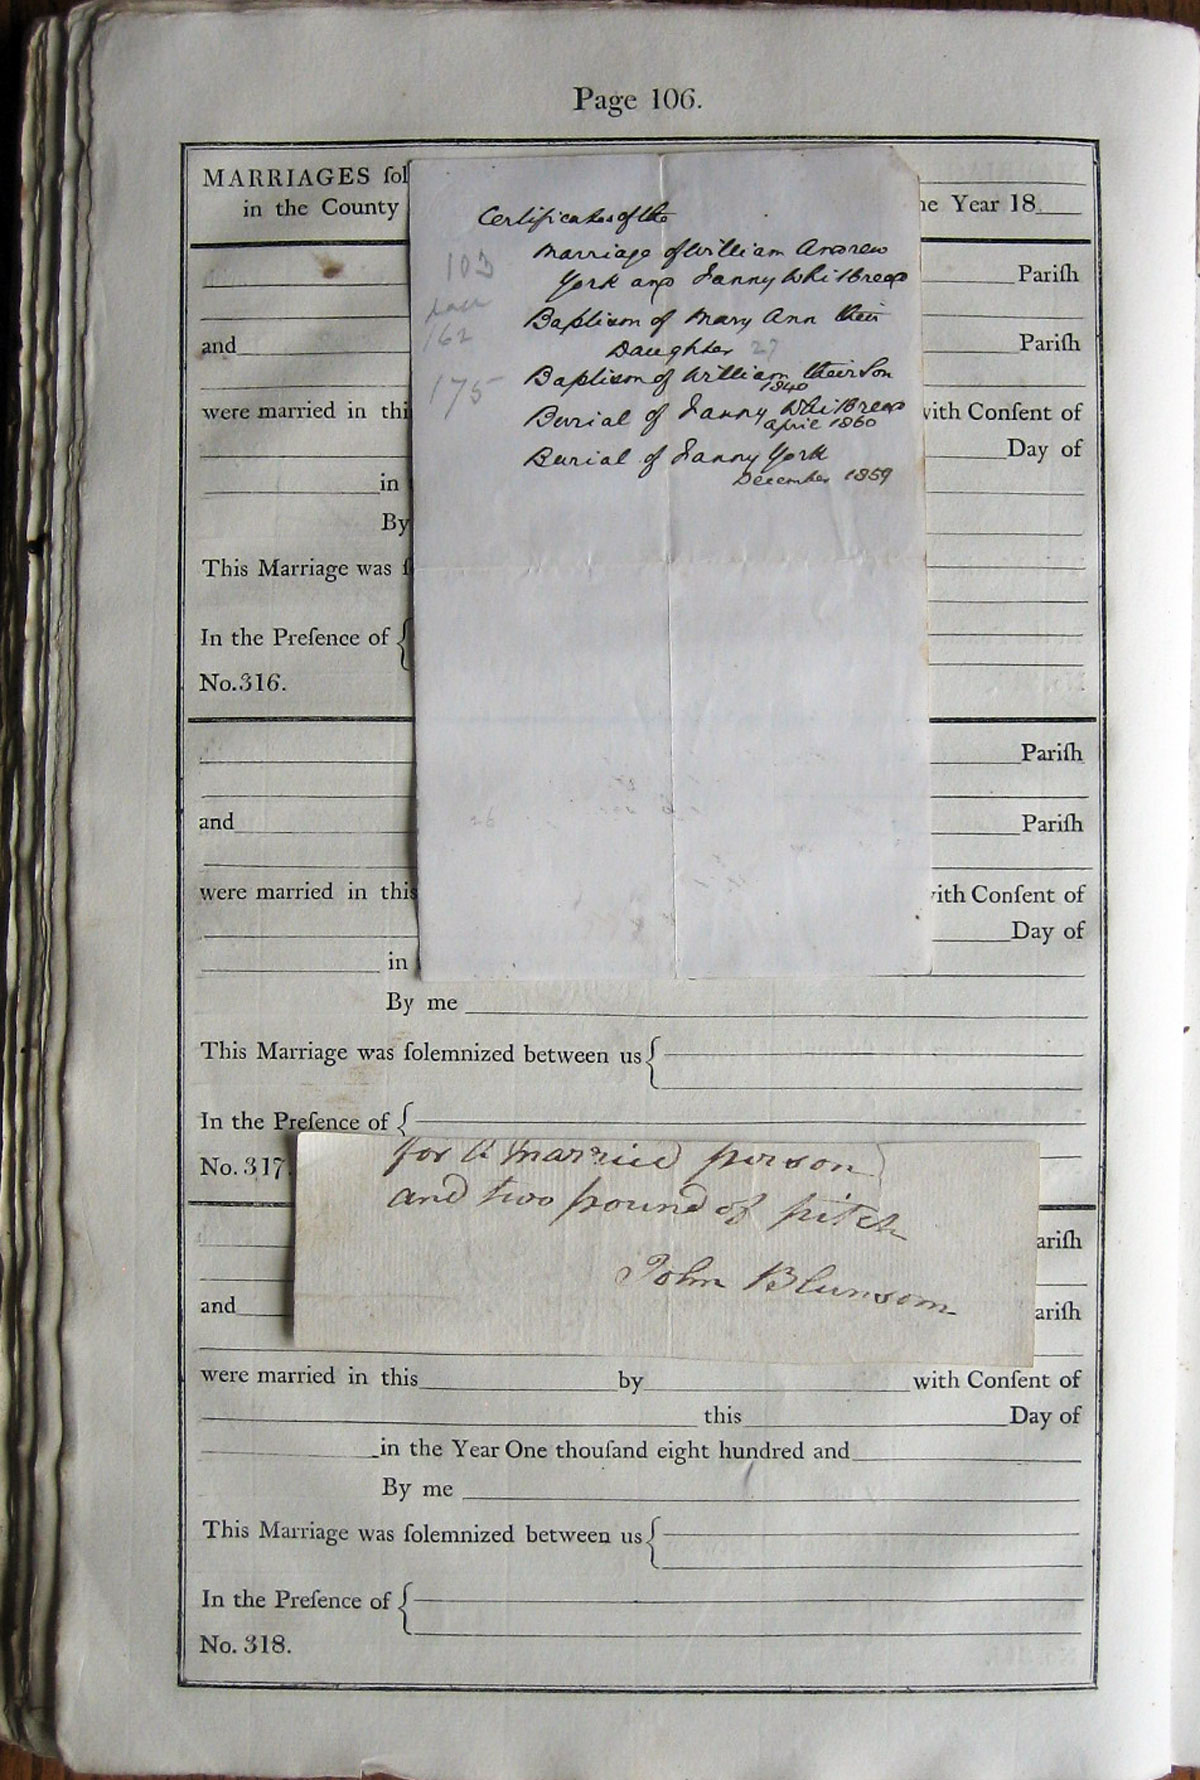 Page 106.
MARRIAGES ſol
he Year 18
in the County
Pariſh
and
Pariſh
were married in thi
with Conſent of
Day of
in
By
This Marriage was ſ
In the Preſence of
No.316.
Certificates of the
Marriage of William Andrew
York and Fanny Whitbread
Baptism of Mary Ann their
Daughter 27
Baptism of William their Son
1840
Burial of Fanny Whitbread
April 1860
Burial of Fanny York
December 1859
103
162
175
26
Pariſh
and
Pariſh
were married in this
with Conſent of
Day of
in
By me
This Marriage was ſolemnized between us
In the Preſence of
No. 317.
for a married person
and two pound of pitch
John Blunsom
ariſh
and
ariſh
were married in this by with Conſent of
this Day of
in the Year One thouſand eight hundred and
By me
This Marriage was ſolemnized between us
In the Preſence of
No. 318.